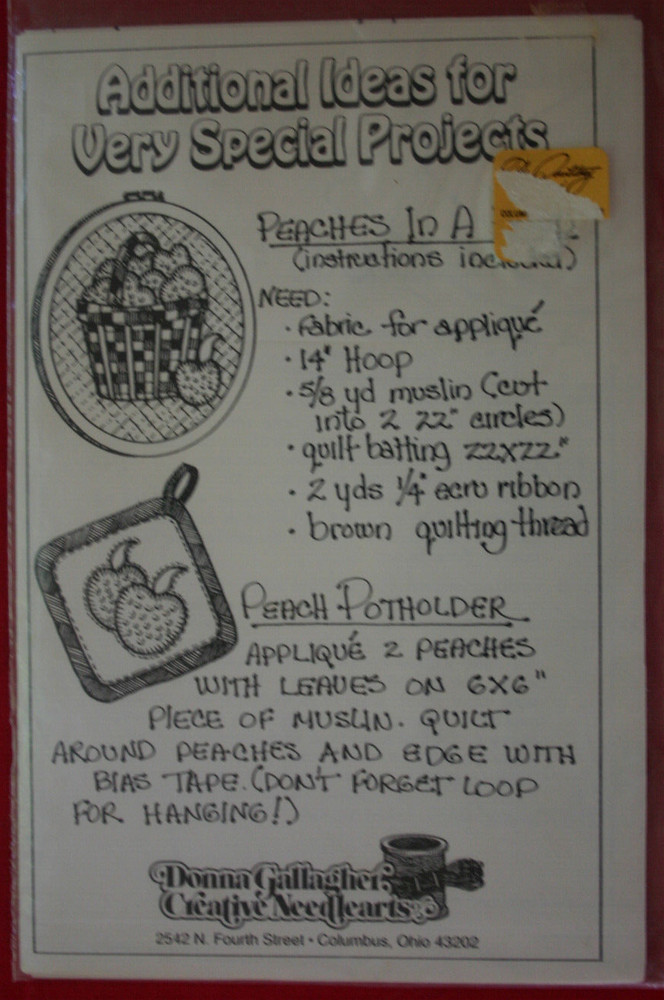 Additional Ideas for
Very Special Projects
PEACHES IN A
(instructions included)
NEED:
· fabric for appliqué
· 14" Hoop
· 5/8 yd muslin (cut
into 2 22" circles)
· quilt batting 22x22"
· 2 yds 1/4" ecru ribbon
· brown quilting thread
PEACH POTHOLDER
APPLIQUÉ 2 PEACHES
WITH LEAVES ON 6X6"
PIECE OF MUSLIN. QUILT
AROUND PEACHES AND EDGE WITH
BIAS TAPE. (DON'T FORGET LOOP
FOR HANGING!)
Donna Gallagher
Creative Needlearts
2542 N. Fourth Street • Columbus, Ohio 43202